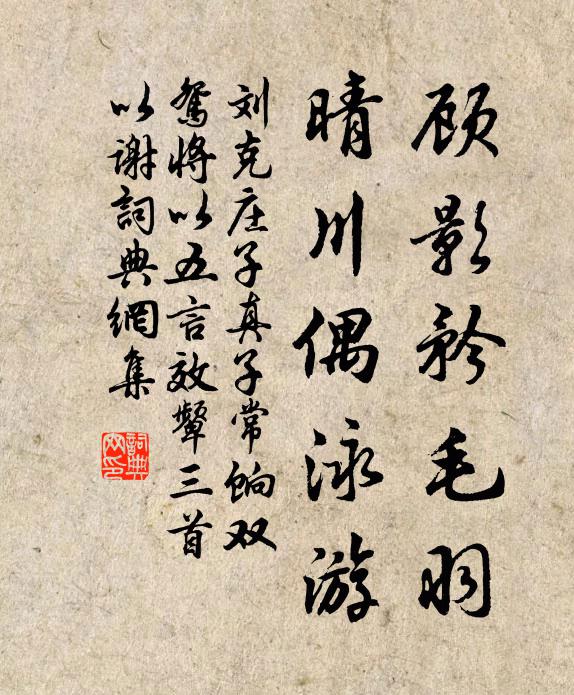 顾影矜毛羽
晴川偶泳游
刘克庄子真子常饷双
鸳将以五言效颦三首
以谢词典網集
詞典網印